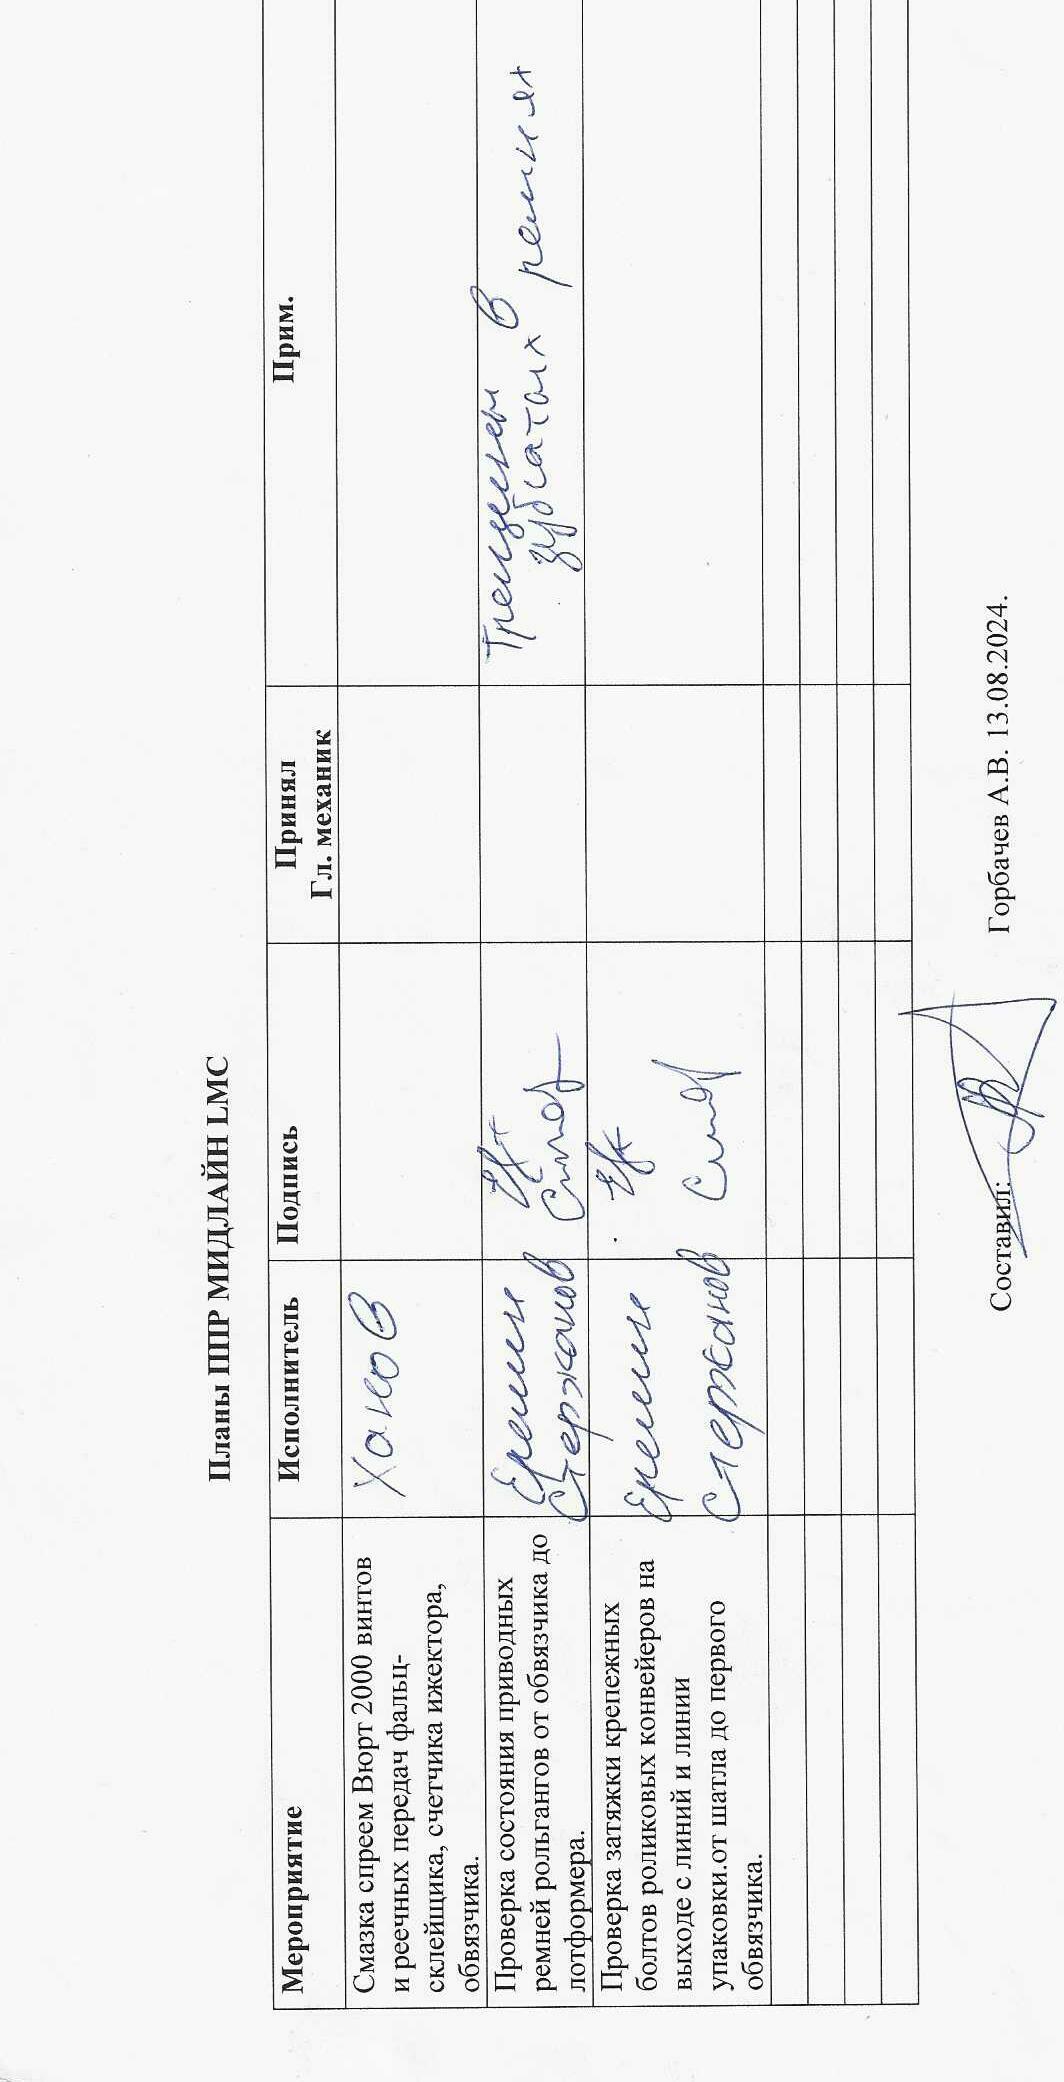 Планы ППР МИДЛАЙН LMC
Мероприятие Исполнитель Подпись Принял Прим.
Гл. механик
Смазка спреем Вюрт 2000 винтов
и реечных передач фальц-
склейщика, счетчика ижектора,
обвязчика.
Ханов
Проверка состояния приводных
ремней рольгангов от обвязчика до
лотформера.
Еремин
Стержанов
Трещины в
зубчатых ремнях
Проверка затяжки крепежных
болтов роликовых конвейеров на
выходе с линий и линии
упаковки.от шатла до первого
обвязчика.
Еремин
Стержанов
Составил: Горбачев А.В. 13.08.2024.